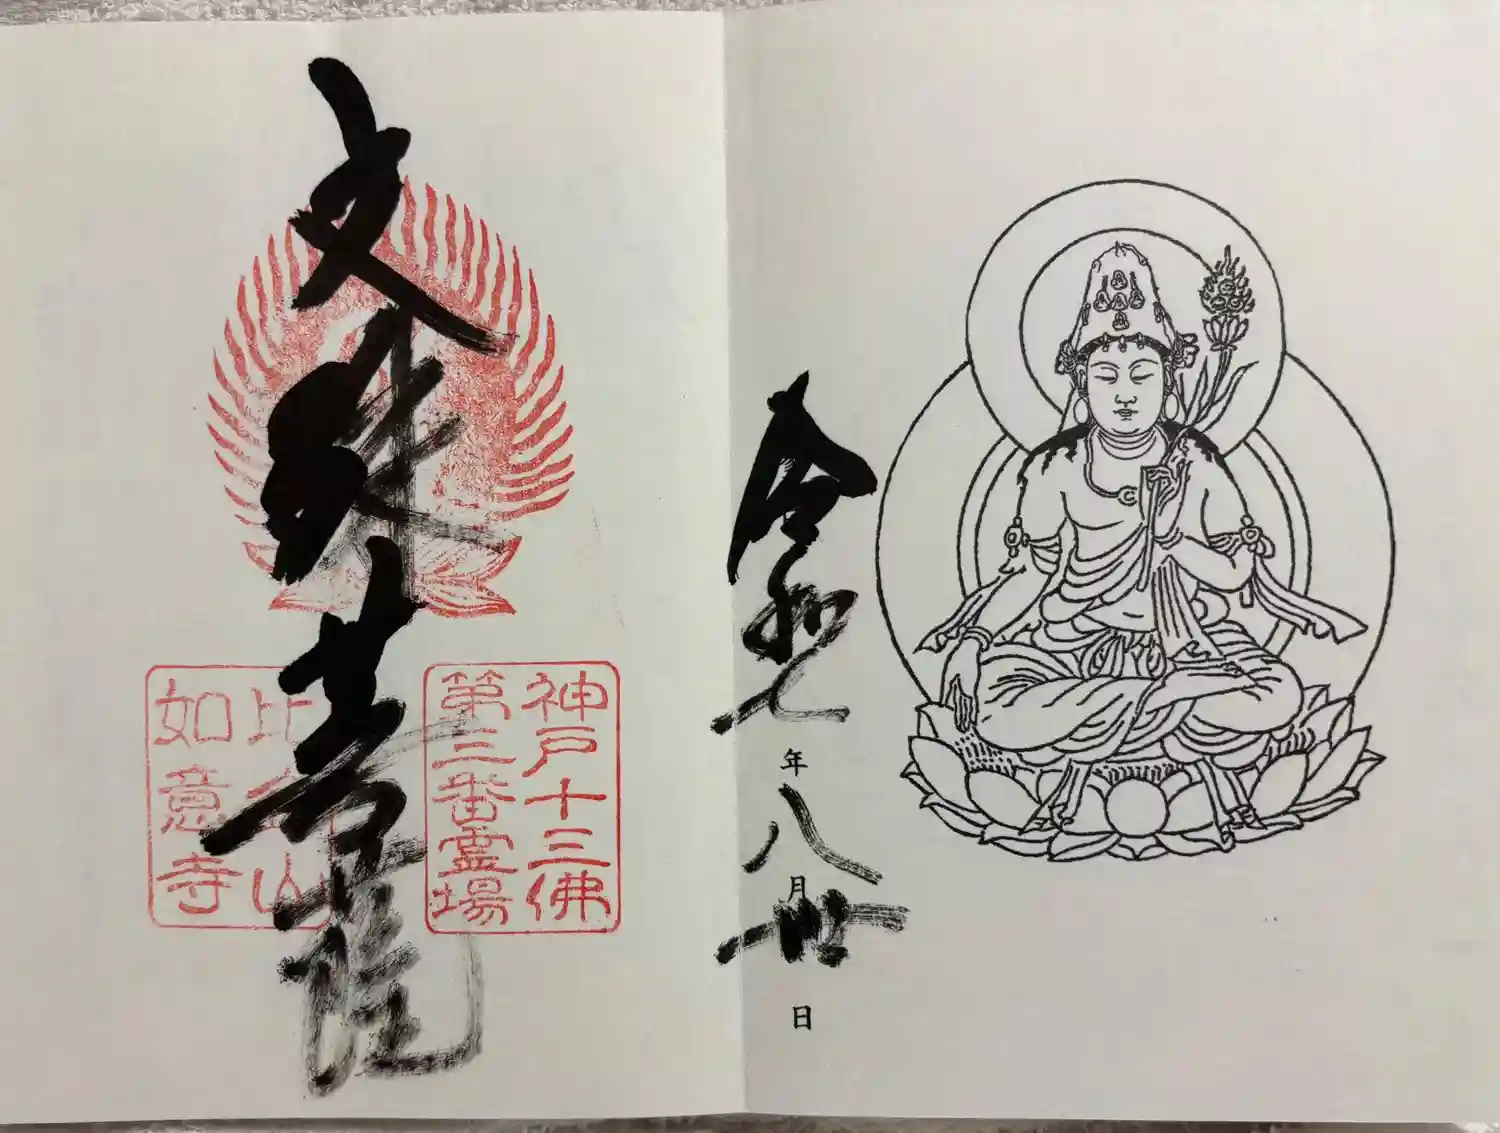 令和七年八月卅日
神戸十三佛
第三番霊場
文殊菩薩
比金山
如意寺